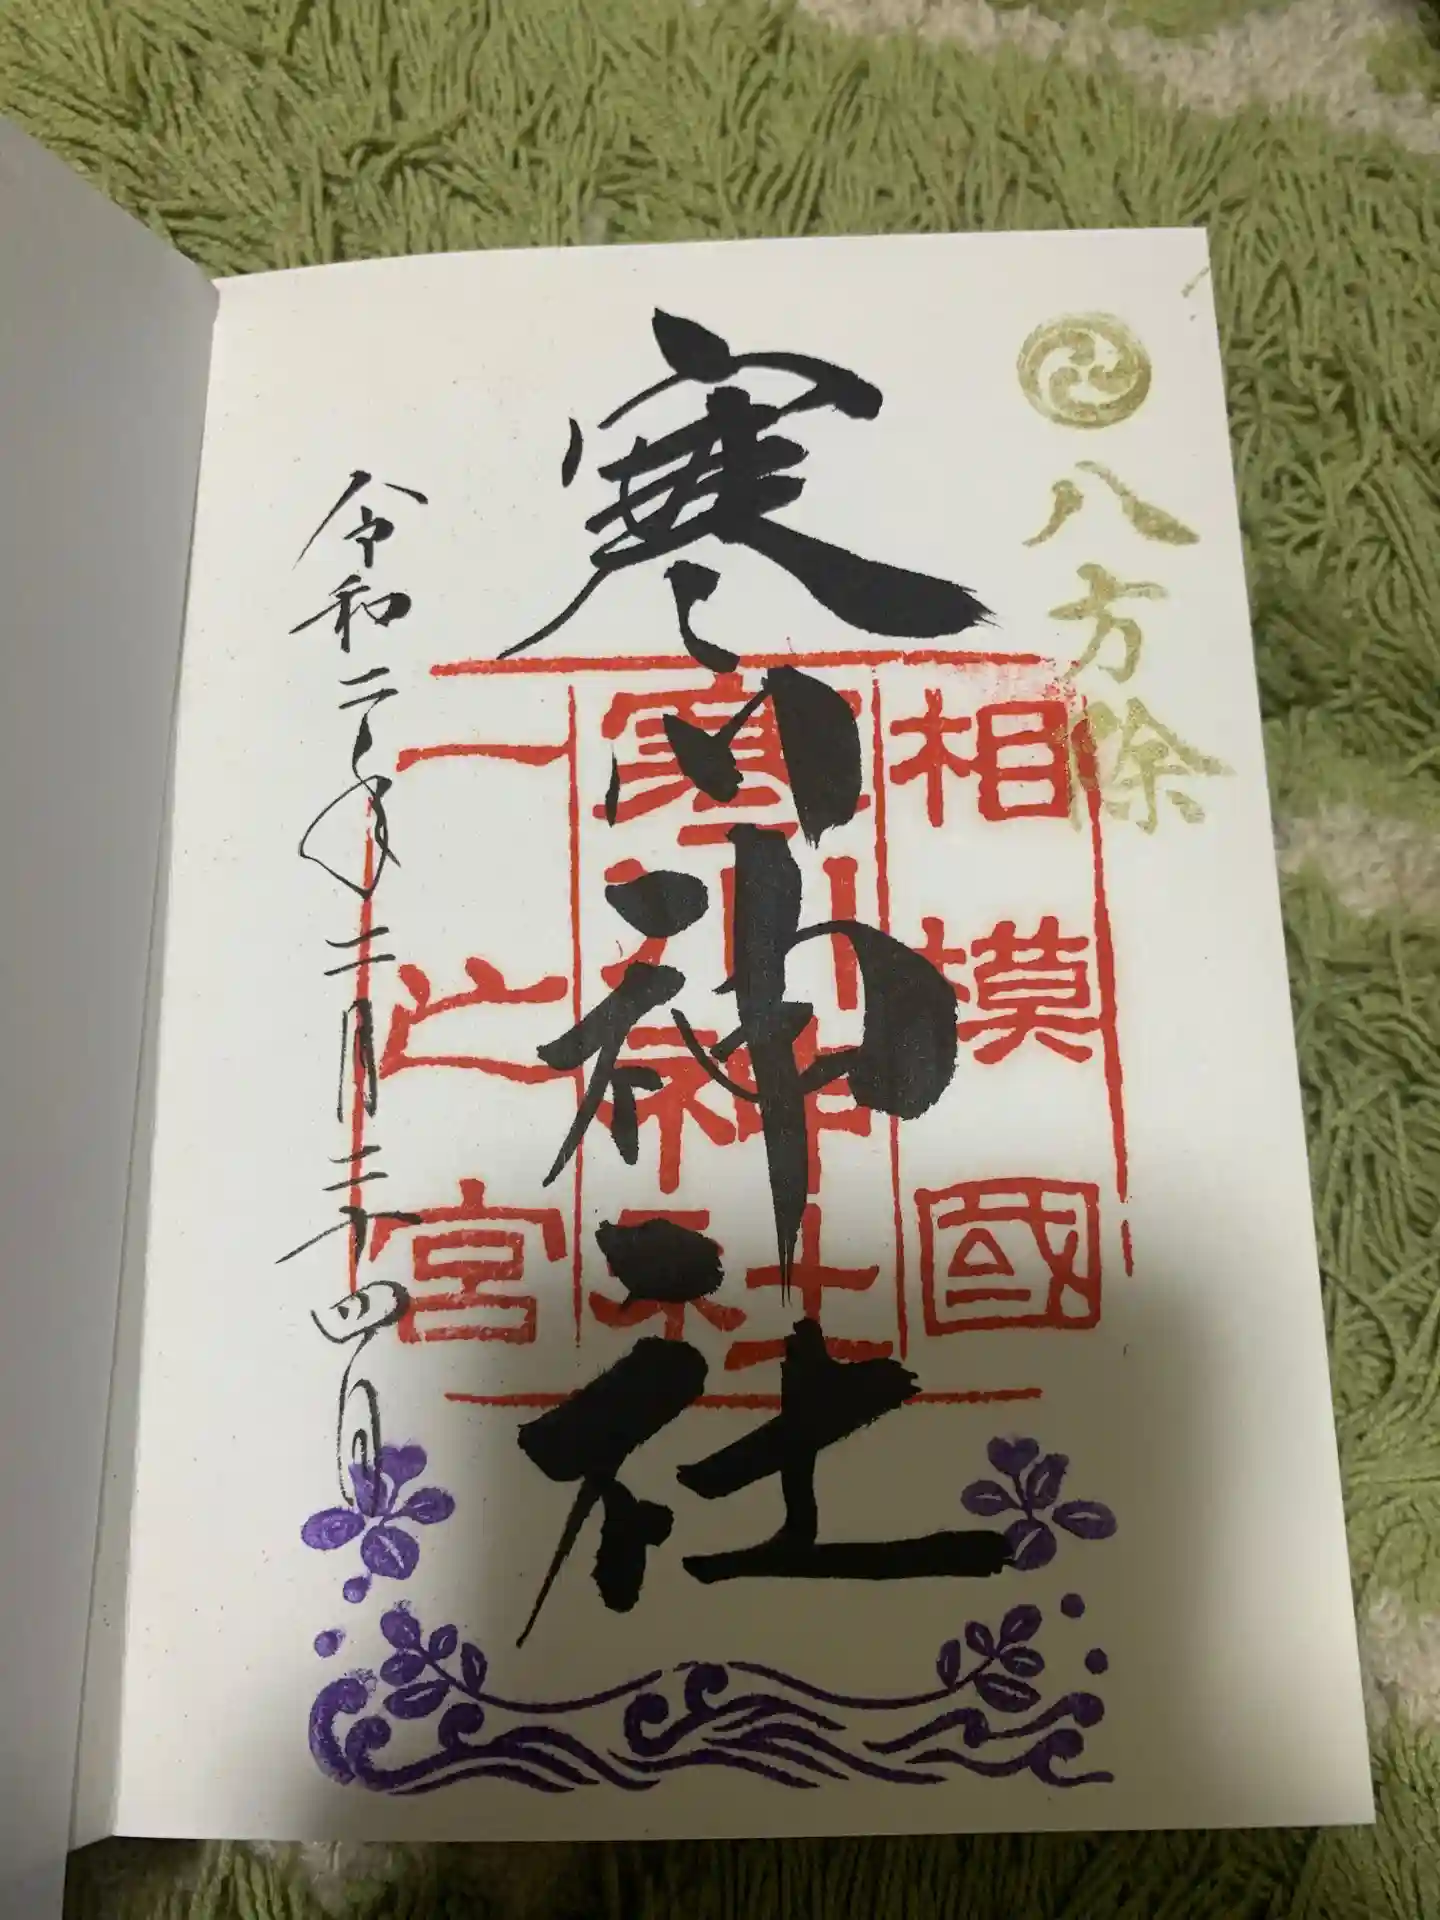 八方除
相模國
寒川神社
一之宮
寒川神社
令和二年二月二十四日